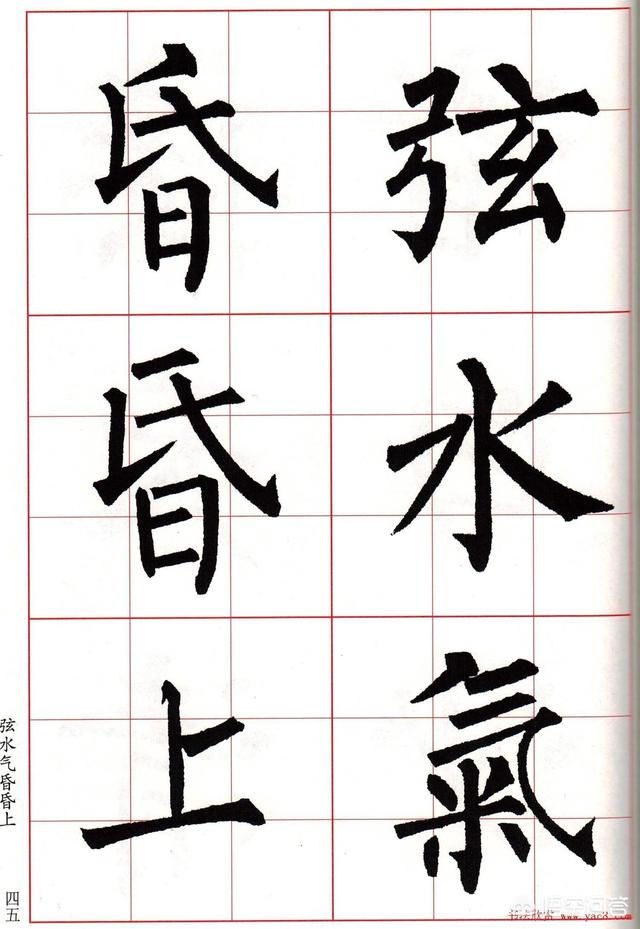 弦水氣
昏昏上
弦水气昏昏上
四五
书法欣赏 www.yac8.com
悟空问答